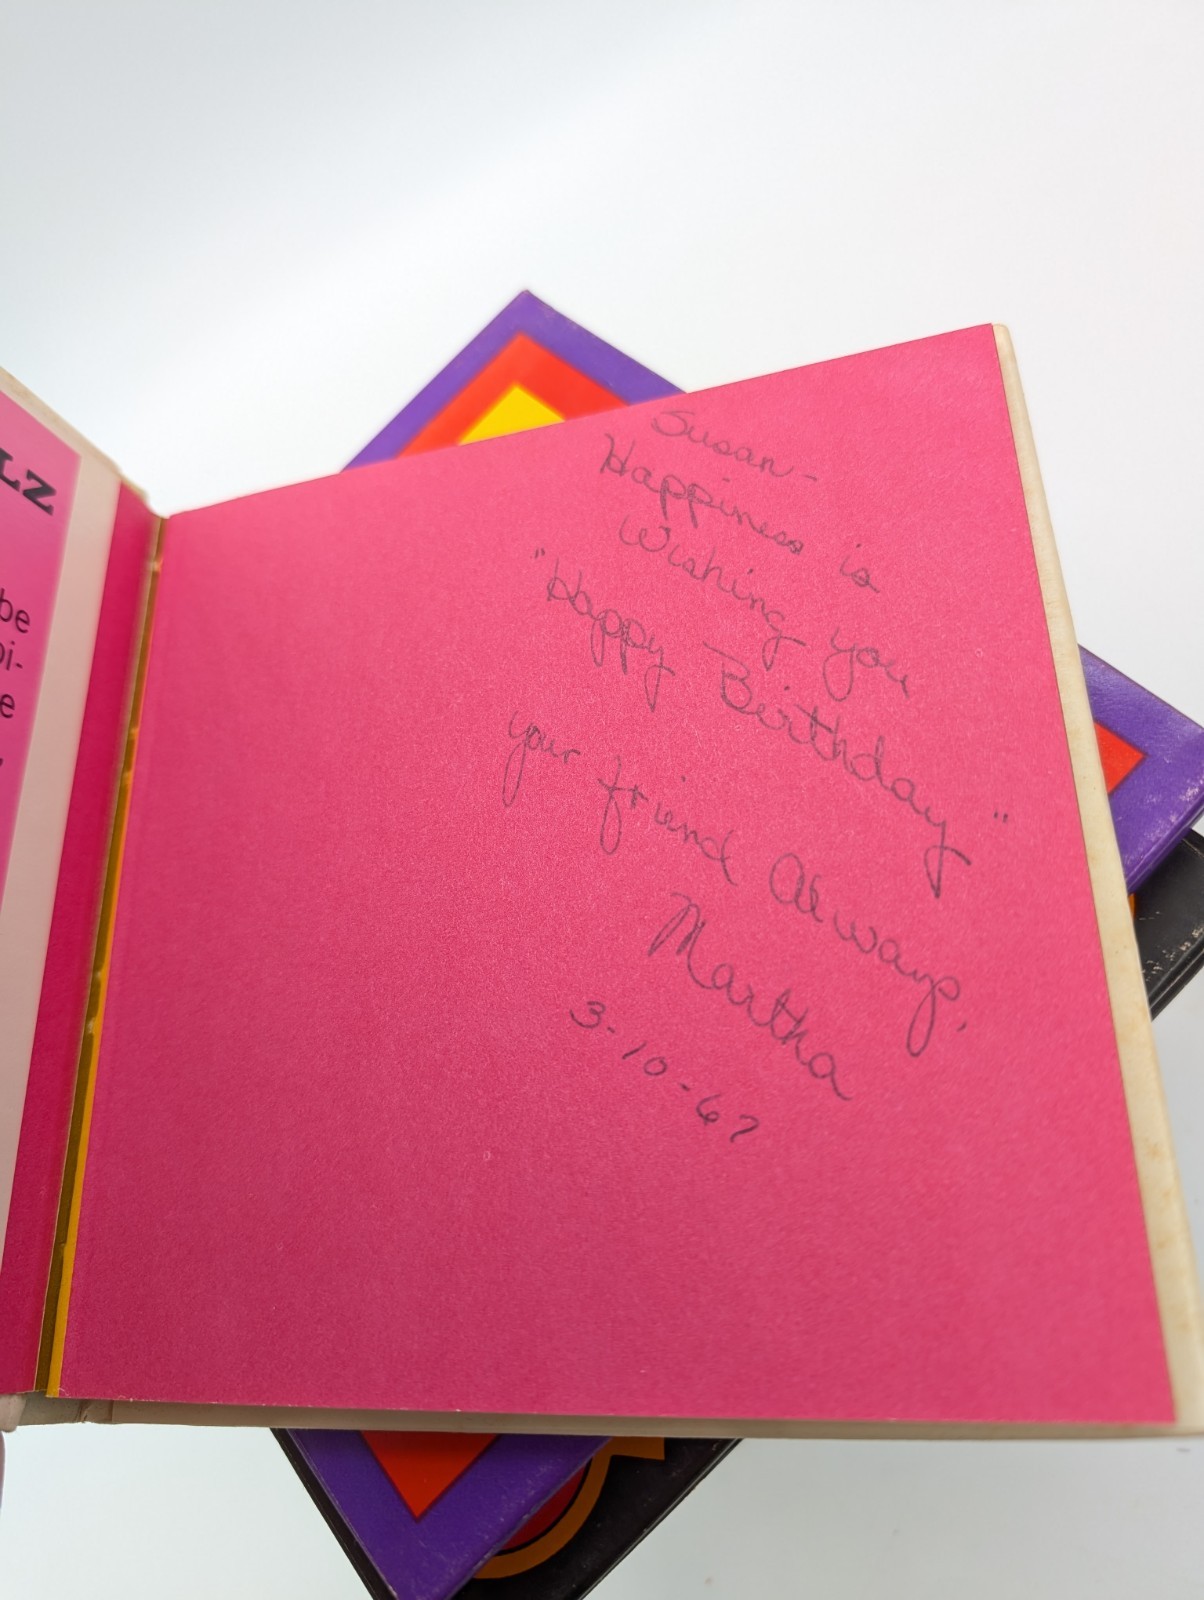 LZ
be
oi-
e
Susan-
Happiness is
Wishing you
"Happy Birthday"
your friend Always,
Martha
3-10-67